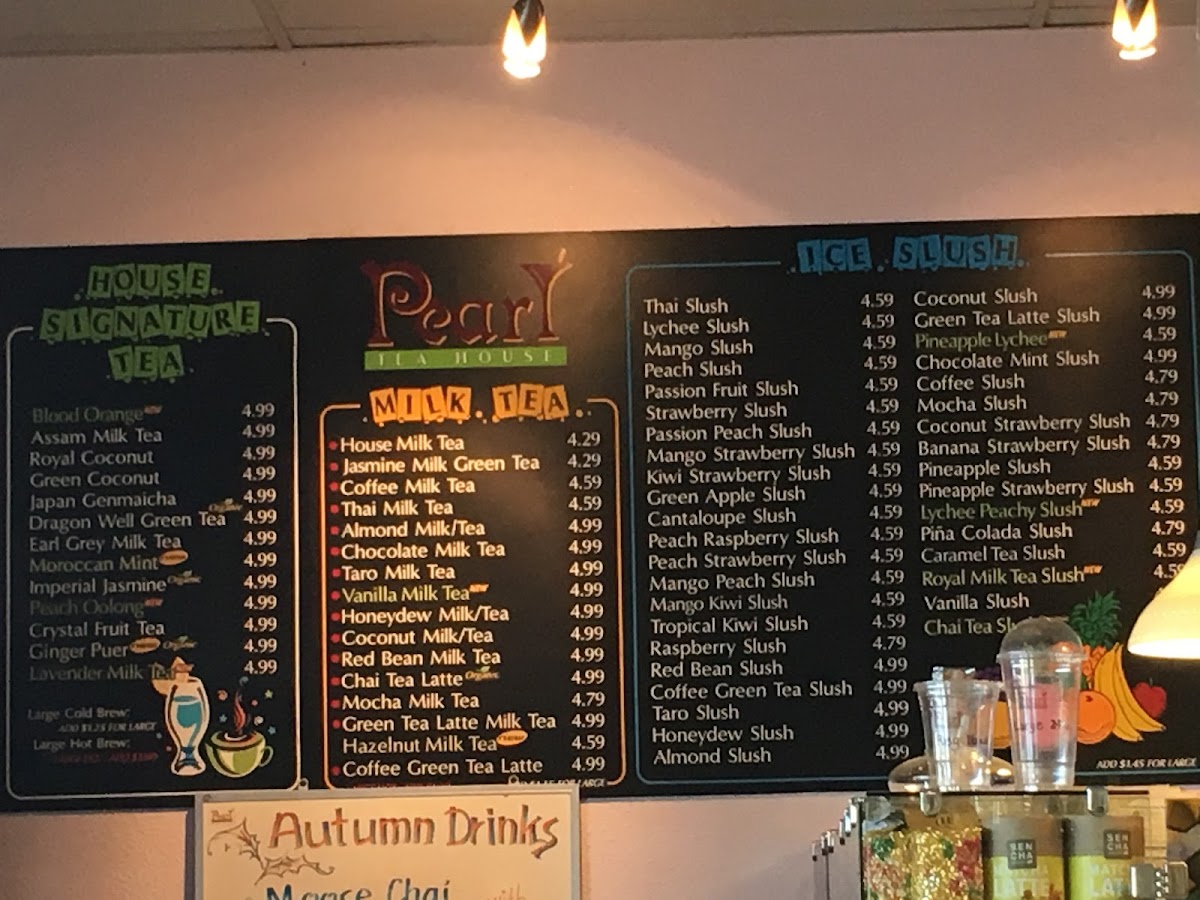 HOUSE
SIGNATURE
TEA
Blood Orange NEW 4.99
Assam Milk Tea 4.99
Royal Coconut 4.99
Green Coconut 4.99
Japan Genmaicha 4.99
Dragon Well Green Tea Organic 4.99
Earl Grey Milk Tea 4.99
Moroccan Mint 4.99
Imperial Jasmine Organic 4.99
Peach Oolong NEW 4.99
Crystal Fruit Tea 4.99
Ginger Puer Organic 4.99
Lavender Milk Tea 4.99
Large Cold Brew:
ADD $1.25 FOR LARGE
Large Hot Brew:
Pearl
TEA HOUSE
MILK TEA
House Milk Tea 4.29
Jasmine Milk Green Tea 4.29
Coffee Milk Tea 4.59
Thai Milk Tea 4.59
Almond Milk/Tea 4.99
Chocolate Milk Tea 4.99
Taro Milk Tea 4.99
Vanilla Milk Tea NEW 4.99
Honeydew Milk/Tea 4.99
Coconut Milk/Tea 4.99
Red Bean Milk Tea 4.99
Chai Tea Latte Organic 4.99
Mocha Milk Tea 4.79
Green Tea Latte Milk Tea 4.99
Hazelnut Milk Tea 4.59
Coffee Green Tea Latte 4.99
FOR LARGE
ICE SLUSH
Thai Slush 4.59
Lychee Slush 4.59
Mango Slush 4.59
Peach Slush 4.59
Passion Fruit Slush 4.59
Strawberry Slush 4.59
Passion Peach Slush 4.59
Mango Strawberry Slush 4.59
Kiwi Strawberry Slush 4.59
Green Apple Slush 4.59
Cantaloupe Slush 4.59
Peach Raspberry Slush 4.59
Peach Strawberry Slush 4.59
Mango Peach Slush 4.59
Mango Kiwi Slush 4.59
Tropical Kiwi Slush 4.59
Raspberry Slush 4.79
Red Bean Slush 4.99
Coffee Green Tea Slush 4.99
Taro Slush 4.99
Honeydew Slush 4.99
Almond Slush 4.99
Coconut Slush 4.99
Green Tea Latte Slush 4.99
Pineapple Lychee NEW 4.59
Chocolate Mint Slush 4.99
Coffee Slush 4.79
Mocha Slush 4.79
Coconut Strawberry Slush 4.79
Banana Strawberry Slush 4.79
Pineapple Slush 4.59
Pineapple Strawberry Slush 4.59
Lychee Peachy Slush NEW 4.59
Piña Colada Slush 4.79
Caramel Tea Slush 4.59
Royal Milk Tea Slush NEW 4.59
Vanilla Slush
Chai Tea Sl
ADD $1.45 FOR LARGE
Autumn Drinks
Moose Chai with
SEN
CHA
LATTE
SEN
CHA